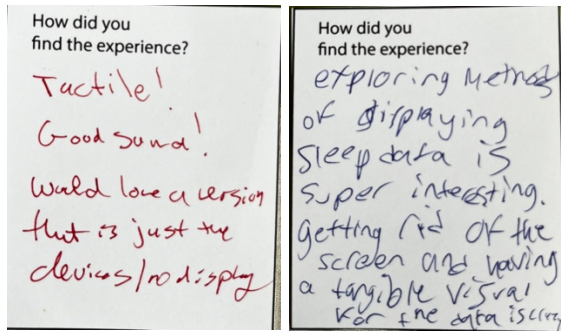 How did you
find the experience?
Tactile!
Good sound!
would love a version
that is just the
devices/no display
How did you
find the experience?
exploring methods
of displaying
sleep data is
super interesting.
getting rid of the
screen and having
a tangible visual
for the data is